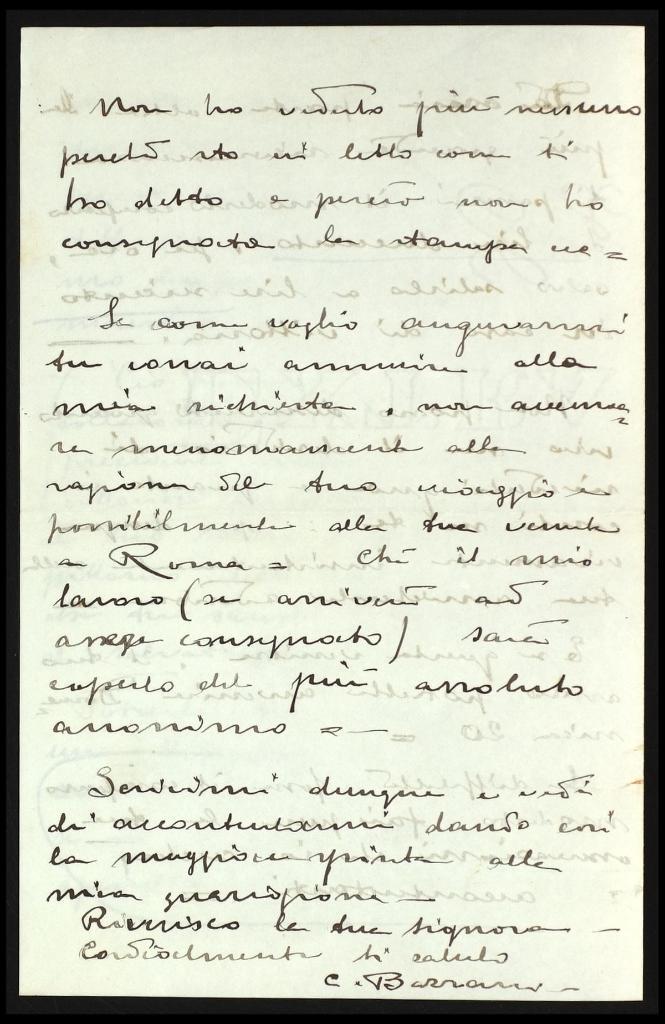 Non ho veduto più nessuno
perchè sto in letto come ti
ho detto e perciò non ho
consegnato la stampa ecc =
Se come voglio augurarmi
tu vorrai annuire alla
mia richiesta, non accenna=
re menomamente alla
ragione del tuo viaggio e
possibilmente alla tua venuta
a Roma = Chè il mio
lavoro (se arriverà ad
consegnato) sarà
coperto del più assoluto
anonimo = —
Scrivimi dunque e vedi
di accontentarmi dando così
la maggiore spinta alla
mia guarigione —
Riverisco la tua signora —
Cordialmente ti saluto
C.